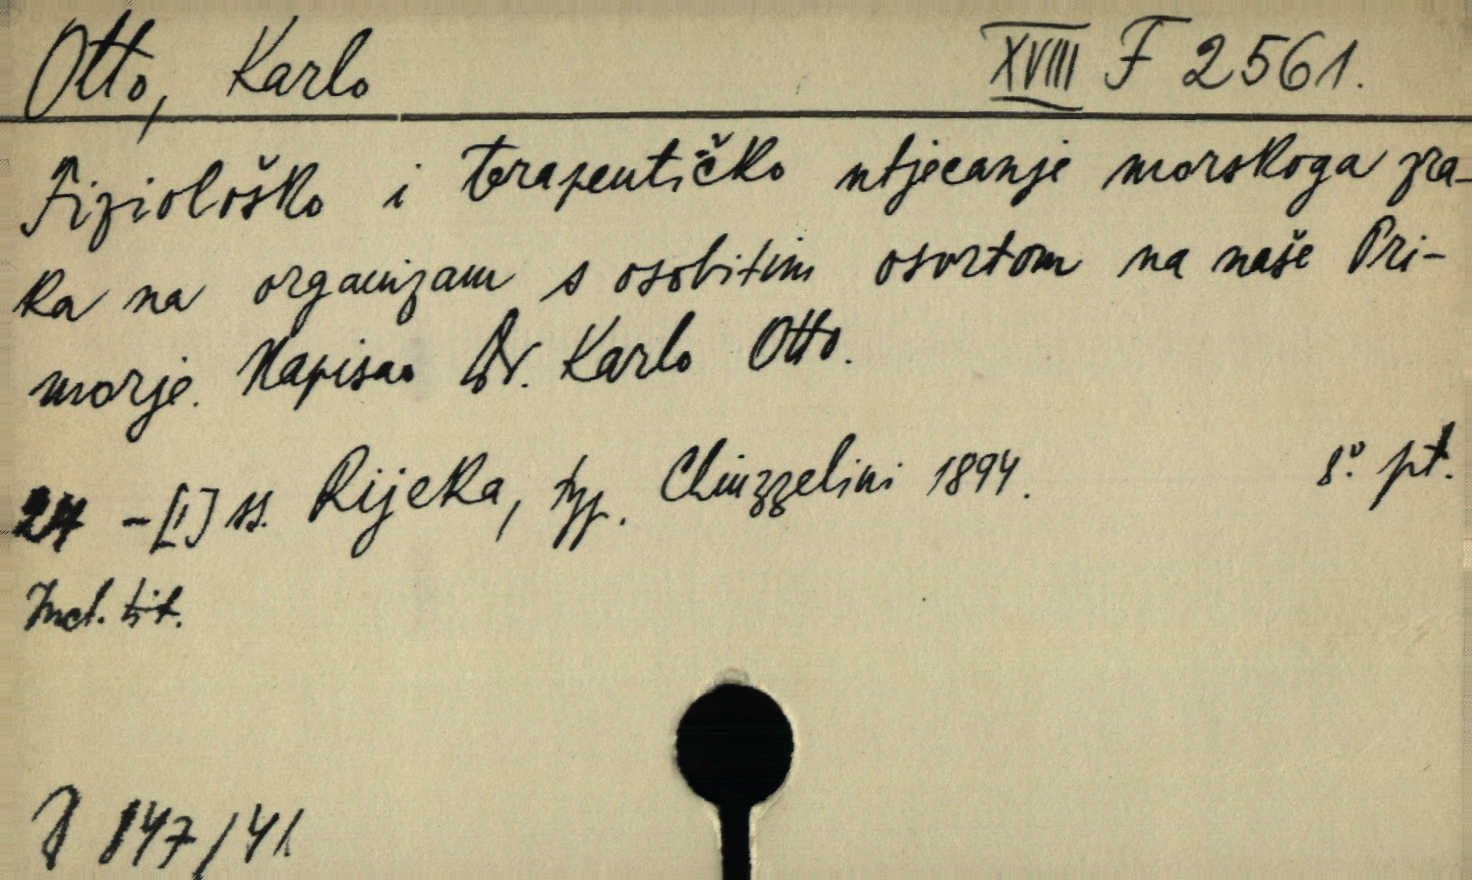 Otto, Karlo XVIII F 2561.
Fiziološko i terapeutičko utjecanje morskoga zra-
ka na organizam s osobitim osvrtom na naše Pri-
morje. Napisao Dr. Karlo Otto.
24 -[1] ss. Rijeka, typ. Chiuzzelini 1894. 8º. pt.
Incl. tit.
147/41